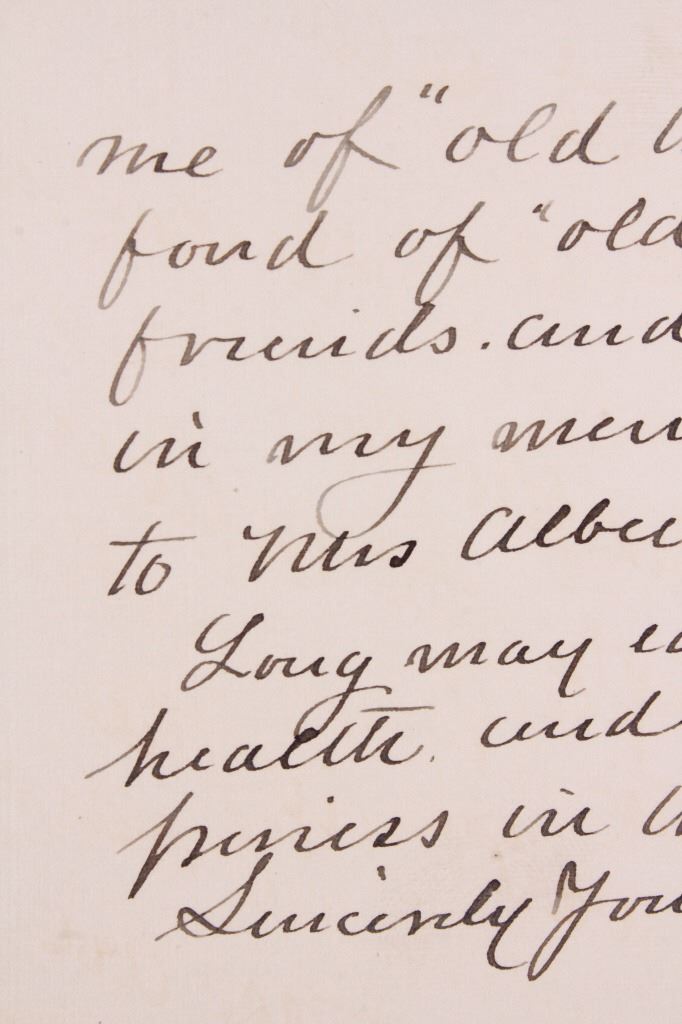 me of "old
fond of "old
friends. and
in my mem
to Mrs Albe
Long may ea
health. and
piness in
Sincerely You